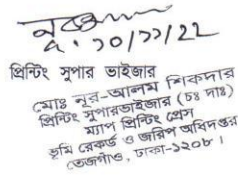 নূর
২০/১১/22
প্রিন্টিং সুপার ভাইজার
মোঃ নূর-আলম শিকদার
প্রিন্টিং সুপারভাইজার (চঃ দাঃ)
ম্যাপ প্রিন্টিং প্রেস
ভূমি রেকর্ড ও জরিপ অধিদপ্তর
তেজগাঁও, ঢাকা-১২০৮।